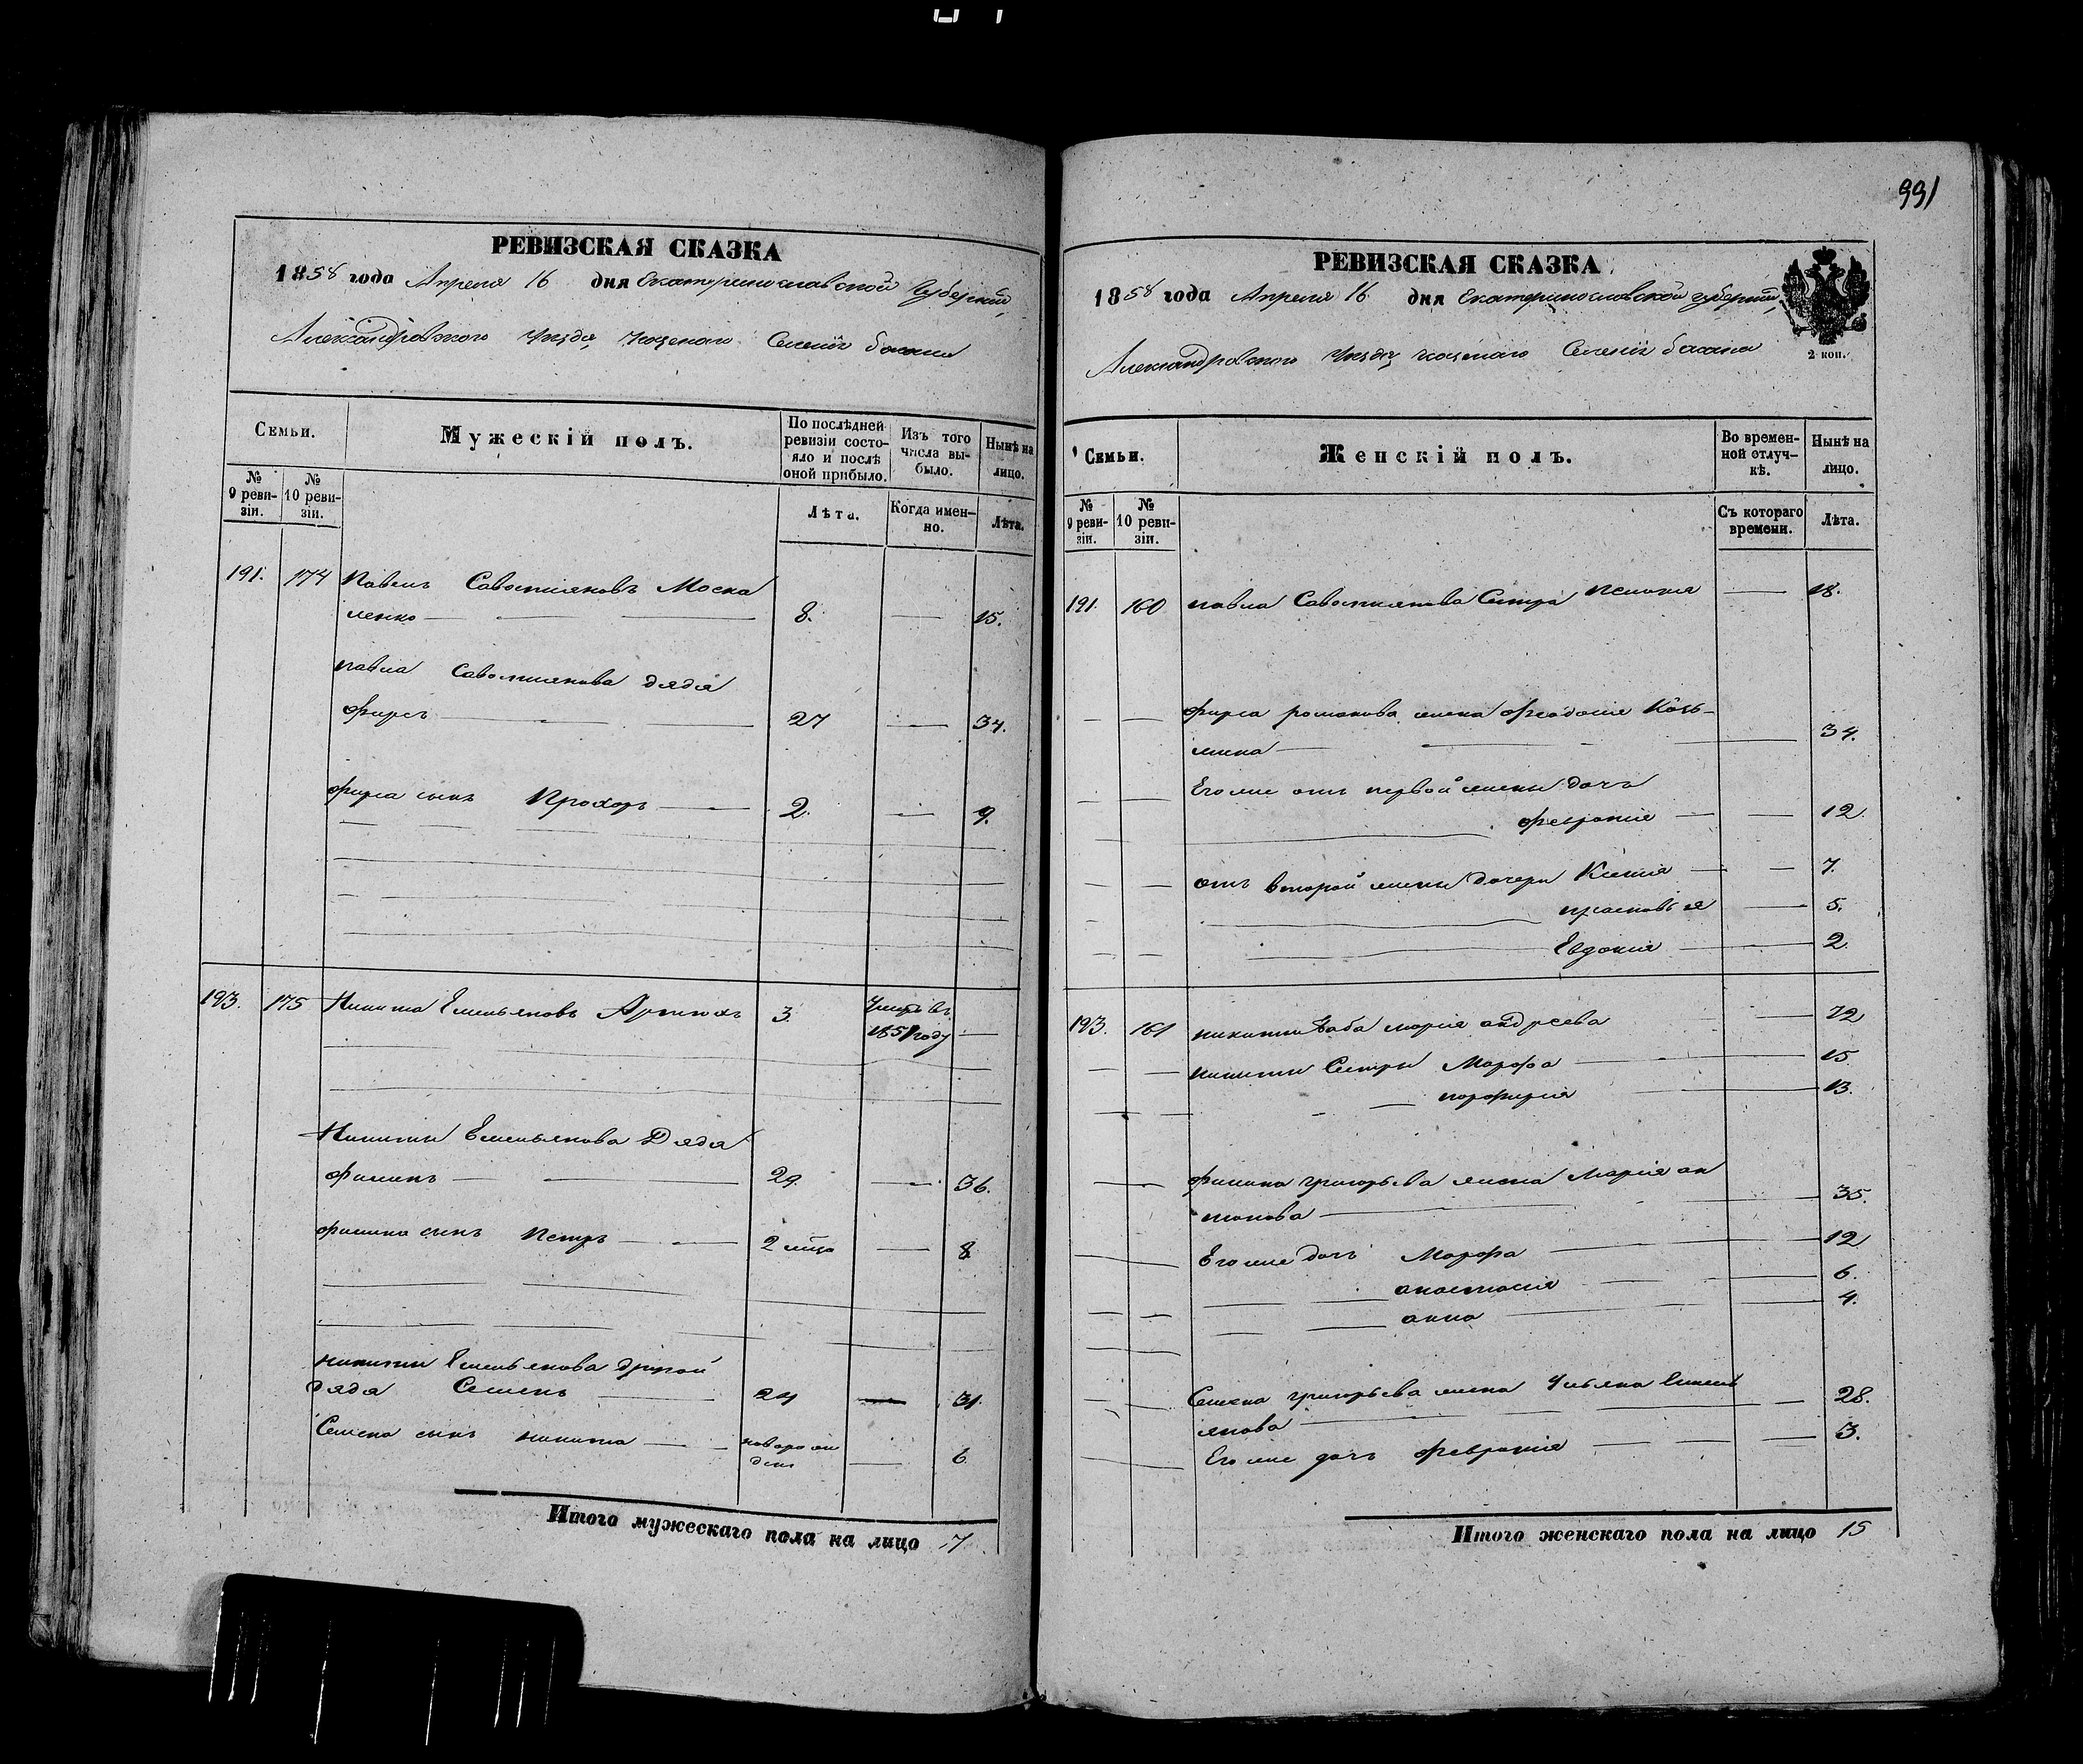 991
РЕВИЗСКАЯ СКАЗКА
1858 года Апреля 16 дня Екатеринославской Губернии,
Александровского Уезда, Селения басани
Семьи.
Мужескій полъ.
По послѣдней ревизіи состояло и послѣ оной прибыло.
Изъ того числа выбыло.
Нынѣ на лицо.
№ 9 ревизіи.
№ 10 ревизіи.
Лѣта.
Когда именно.
Лѣта.
191. 174 Павелъ Савостияновъ Моска
ленко 8. 15.
павла Савостиянова дядя
Фирсъ 27 34.
Фирса сынъ Прохоръ 2. 9.
193. 175 Никита Емельяновъ 3. Умръ въ
185 году
Никиты Емельянова Дядя
Филипъ 29. 36.
Филипа сынъ Петръ 2 мѣца 8
никиты Емельянова другой
дядя Семенъ 24 31.
Семена сынъ никита новорож
денъ 6
Итого мужескаго пола на лицо 7
РЕВИЗСКАЯ СКАЗКА
1858 года Апреля 16 дня Екатеринославской губернии,
Александровского Уезда Селения басани
2 коп.
Семьи.
Женскій полъ.
Во временной отлучкѣ.
Нынѣ на лицо.
№ 9 ревизіи.
№ 10 ревизіи.
Съ котораго времени.
Лѣта.
191. 160 павла Савостиянова Сестра 18.
Фирса романова жена Феодосия Козь-
мина 34.
Его же отъ первой жены дочь
Феврония 12.
отъ второй жены дочери Ксения 7.
прасковья 5.
Евдокия 2.
193. 161 никиты баба мария андреева 72
никиты Сестры Марфа 15
порфирия 13.
Филипа григорьева жена Мария ан
тонова 35.
Его же дочь Марфа 12
анастасия 6.
анна 4.
Семена григорьева жена Ульяна Емель
янова 28.
Его же дочь Феврония 3.
Итого женскаго пола на лицо 15